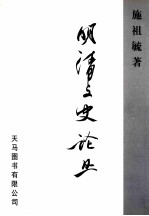 施祖毓著
明清文史论丛
天马图书有限公司